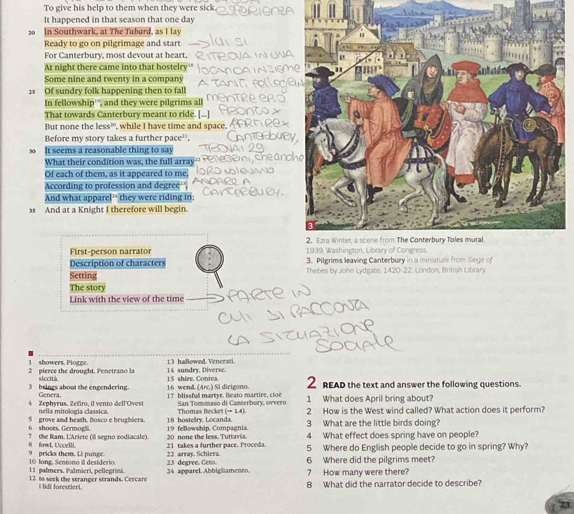 To give his help to them when they were sick.
It happened in that season that one day
20 In Southwark, at The Tabard, as I lay
Ready to go on pilgrimage and start
For Canterbury, most devout at heart,
At night there came into that hostelry18
Some nine and twenty in a company
25 Of sundry folk happening then to fall
In fellowship19, and they were pilgrims all
That towards Canterbury meant to ride. [...]
But none the less20, while I have time and space,
Before my story takes a further pace21,
30 It seems a reasonable thing to say
What their condition was, the full array22
Of each of them, as it appeared to me,
According to profession and degree23,
And what apparel24 they were riding in;
35 And at a Knight I therefore will begin.
LUI SI
RITROVA IN UNA
LOCANDA INSIEME
A TANTI PELLEGRINI
MENTRE ERO
PRONTO A
PARTIRE X
Canterbury,
29
PELLEGRINI, che anche
LORO VOLEVANO
ANDARE A
CANTERBURY.
First-person narrator
Description of characters
Setting
The story
Link with the view of the time
PARTE IN
CUI SI RACCONTA
LA SITUAZIONE
SOCIALE
3
2. Ezra Winter, a scene from The Canterbury Tales mural,
1939. Washington, Library of Congress.
3. Pilgrims leaving Canterbury in a miniature from Siege of
Thebes by John Lydgate, 1420-22. London, British Library.
1 showers. Piogge.
2 pierce the drought. Penetrano la
siccità.
3 brings about the engendering.
Genera.
4 Zephyrus. Zefiro, il vento dell'Ovest
nella mitologia classica.
5 grove and heath. Bosco e brughiera.
6 shoots. Germogli.
7 the Ram. L'Ariete (il segno zodiacale).
8 fowl. Uccelli.
9 pricks them. Li punge.
10 long. Sentono il desiderio.
11 palmers. Palmieri, pellegrini.
12 to seek the stranger strands. Cercare
i lidi forestieri.
13 hallowed. Venerati.
14 sundry. Diverse.
15 shire. Contea.
16 wend. (Arc.) Si dirigono.
17 blissful martyr. Beato martire, cioè
San Tommaso di Canterbury, ovvero
Thomas Becket (→ 1.4).
18 hostelry. Locanda.
19 fellowship. Compagnia.
20 none the less. Tuttavia.
21 takes a further pace. Proceda.
22 array. Schiera.
23 degree. Ceto.
24 apparel. Abbigliamento.
2 READ the text and answer the following questions.
1 What does April bring about?
2 How is the West wind called? What action does it perform?
3 What are the little birds doing?
4 What effect does spring have on people?
5 Where do English people decide to go in spring? Why?
6 Where did the pilgrims meet?
7 How many were there?
8 What did the narrator decide to describe?
23